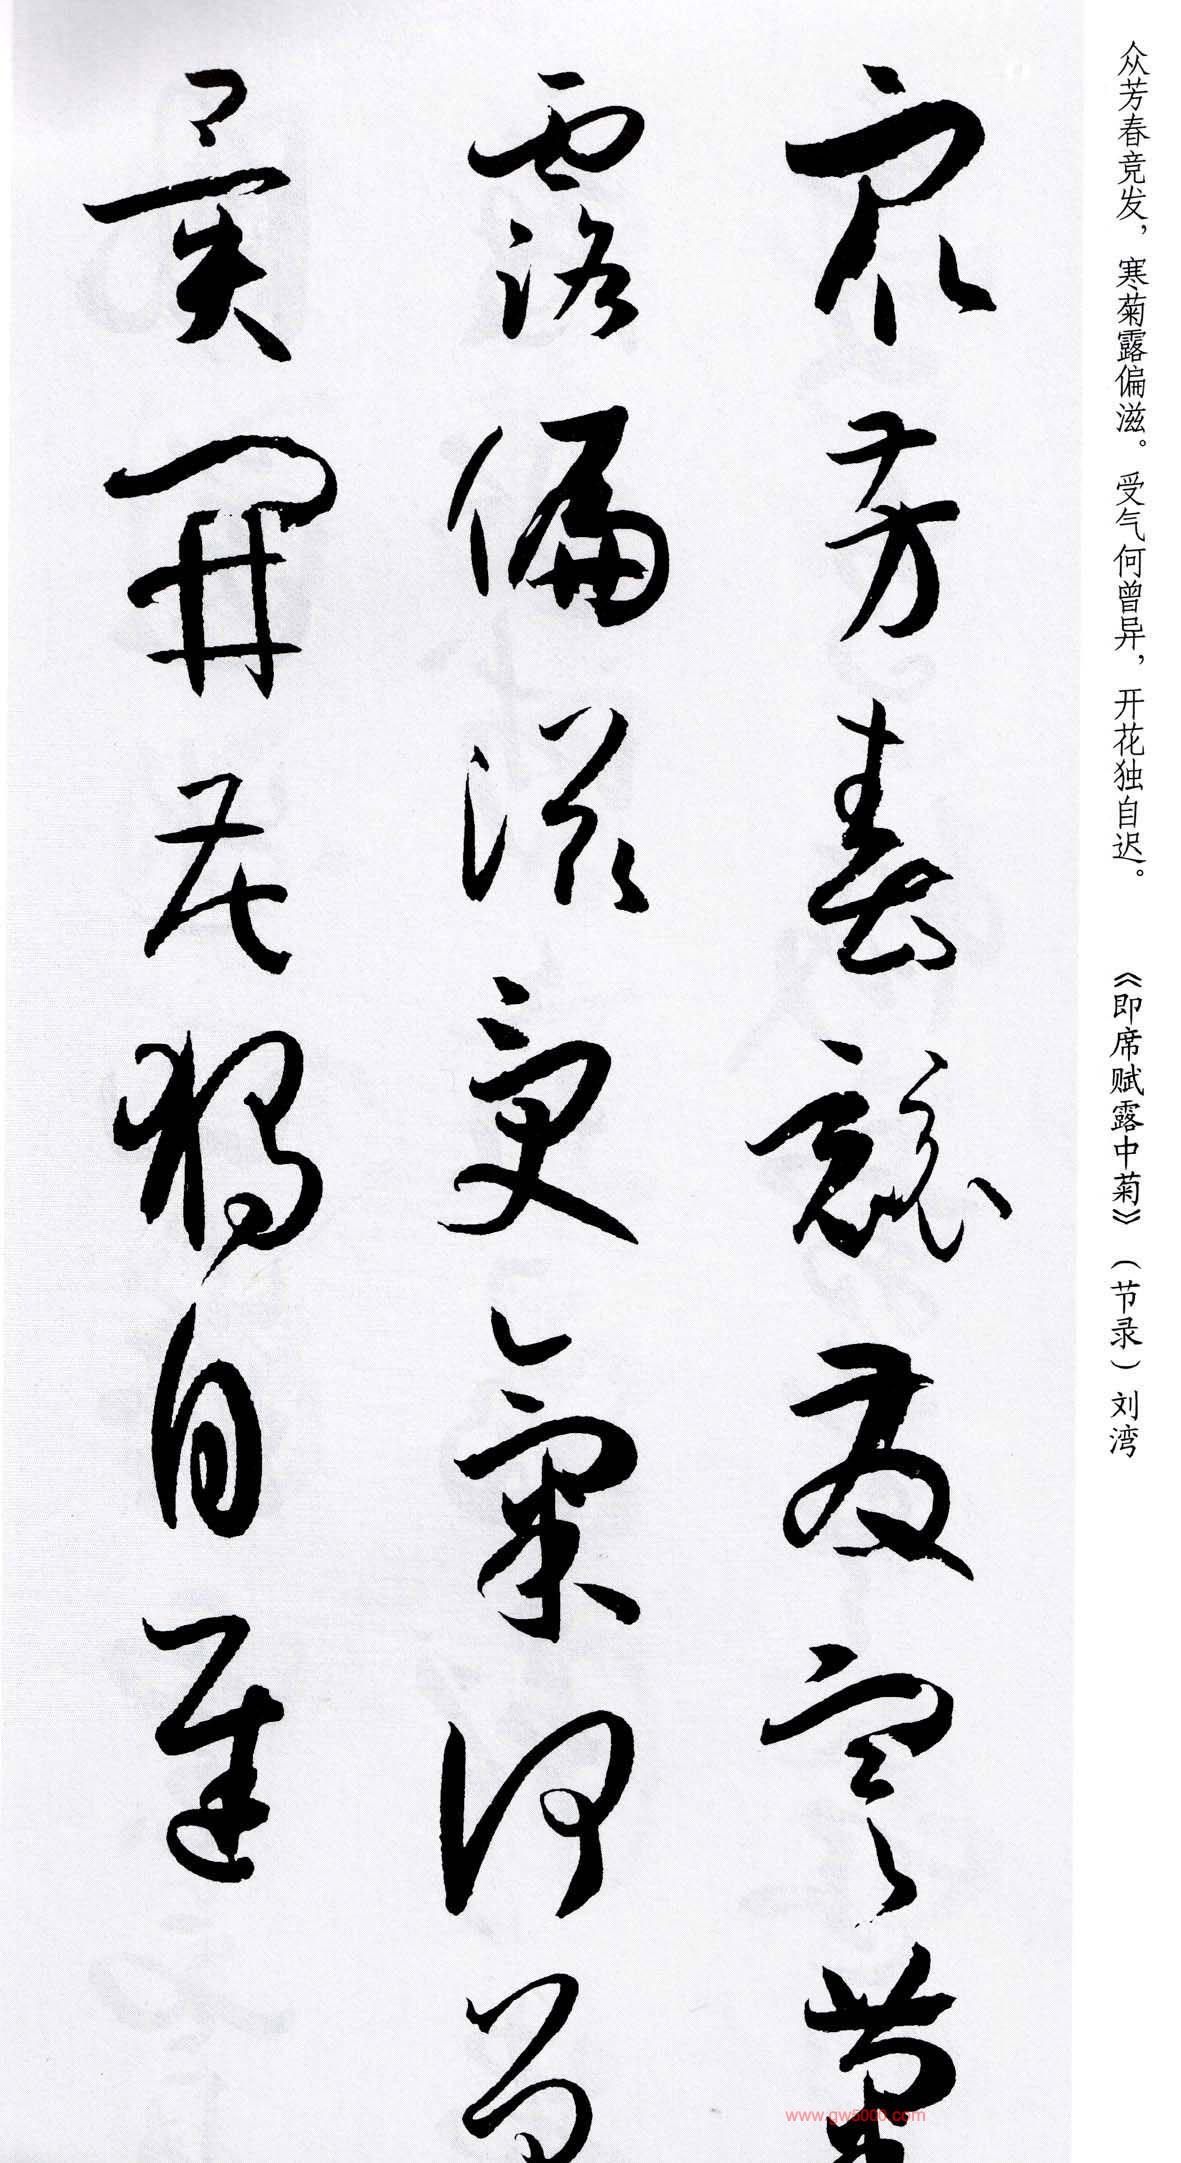 众芳春竞发，寒菊露偏滋。受气何曾异，开花独自迟。 《即席赋露中菊》（节录）刘湾
眾芳春競發寒菊
露偏滋受氣何曾
異開花獨自遲
www.gw5000.com